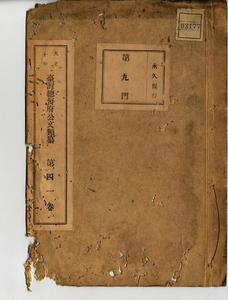 03177
永久保存
第九門
臺灣總督府公文類纂 第四一卷